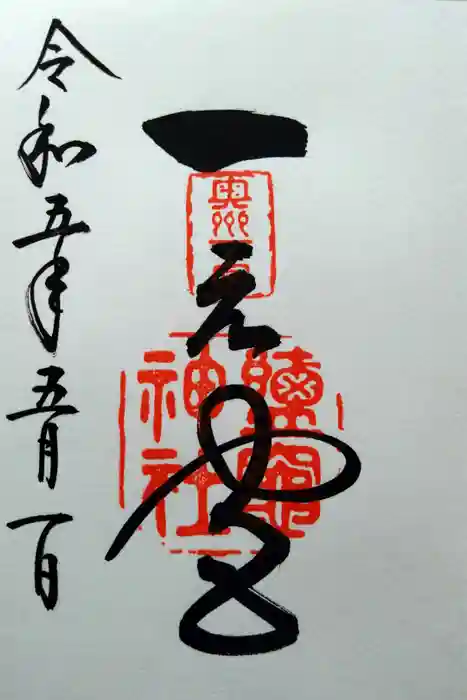 一之宮
奥州
神社
令和五年五月一日